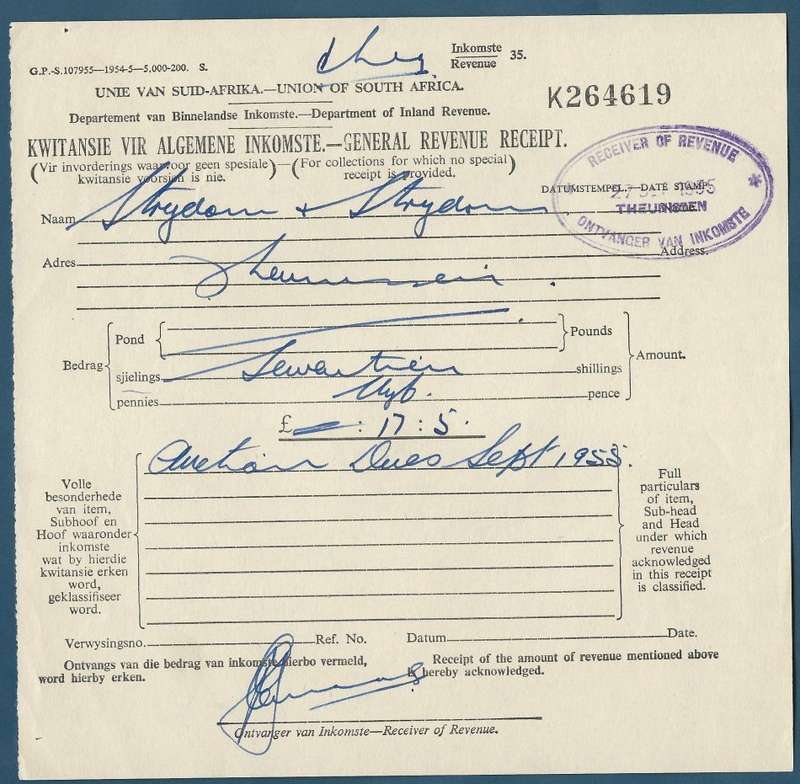 Inkomste
Revenue 35.
G.P.-S.107955—1954-5—5,000-200. S.
UNIE VAN SUID-AFRIKA.—UNION OF SOUTH AFRICA.
K264619
Departement van Binnelandse Inkomste.—Department of Inland Revenue.
KWITANSIE VIR ALGEMENE INKOMSTE.—GENERAL REVENUE RECEIPT.
(Vir invorderings waarvoor geen spesiale kwitansie voorsien is nie.)—(For collections for which no special receipt is provided.)
RECEIVER OF REVENUE
DATUMSTEMPEL.—DATE STAMP.
1955
THEUNISSEN
ONTVANGER VAN INKOMSTE
Naam Strydom & Strydom Name.
Adres Theunissen. Address.
Bedrag Pond Pounds Amount.
sjielings Sewentien shillings
pennies Vyf. pence
£ — : 17 : 5.
Auction Dues Sept 1955.
Volle besonderhede van item, Subhoof en Hoof waaronder inkomste wat by hierdie kwitansie erken word, geklassifiseer word.
Full particulars of item, Sub-head and Head under which revenue acknowledged in this receipt is classified.
Verwysingsno. Ref. No. Datum Date.
Ontvangs van die bedrag van inkomste hierbo vermeld, word hierby erken.
Receipt of the amount of revenue mentioned above is hereby acknowledged.
Ontvanger van Inkomste—Receiver of Revenue.